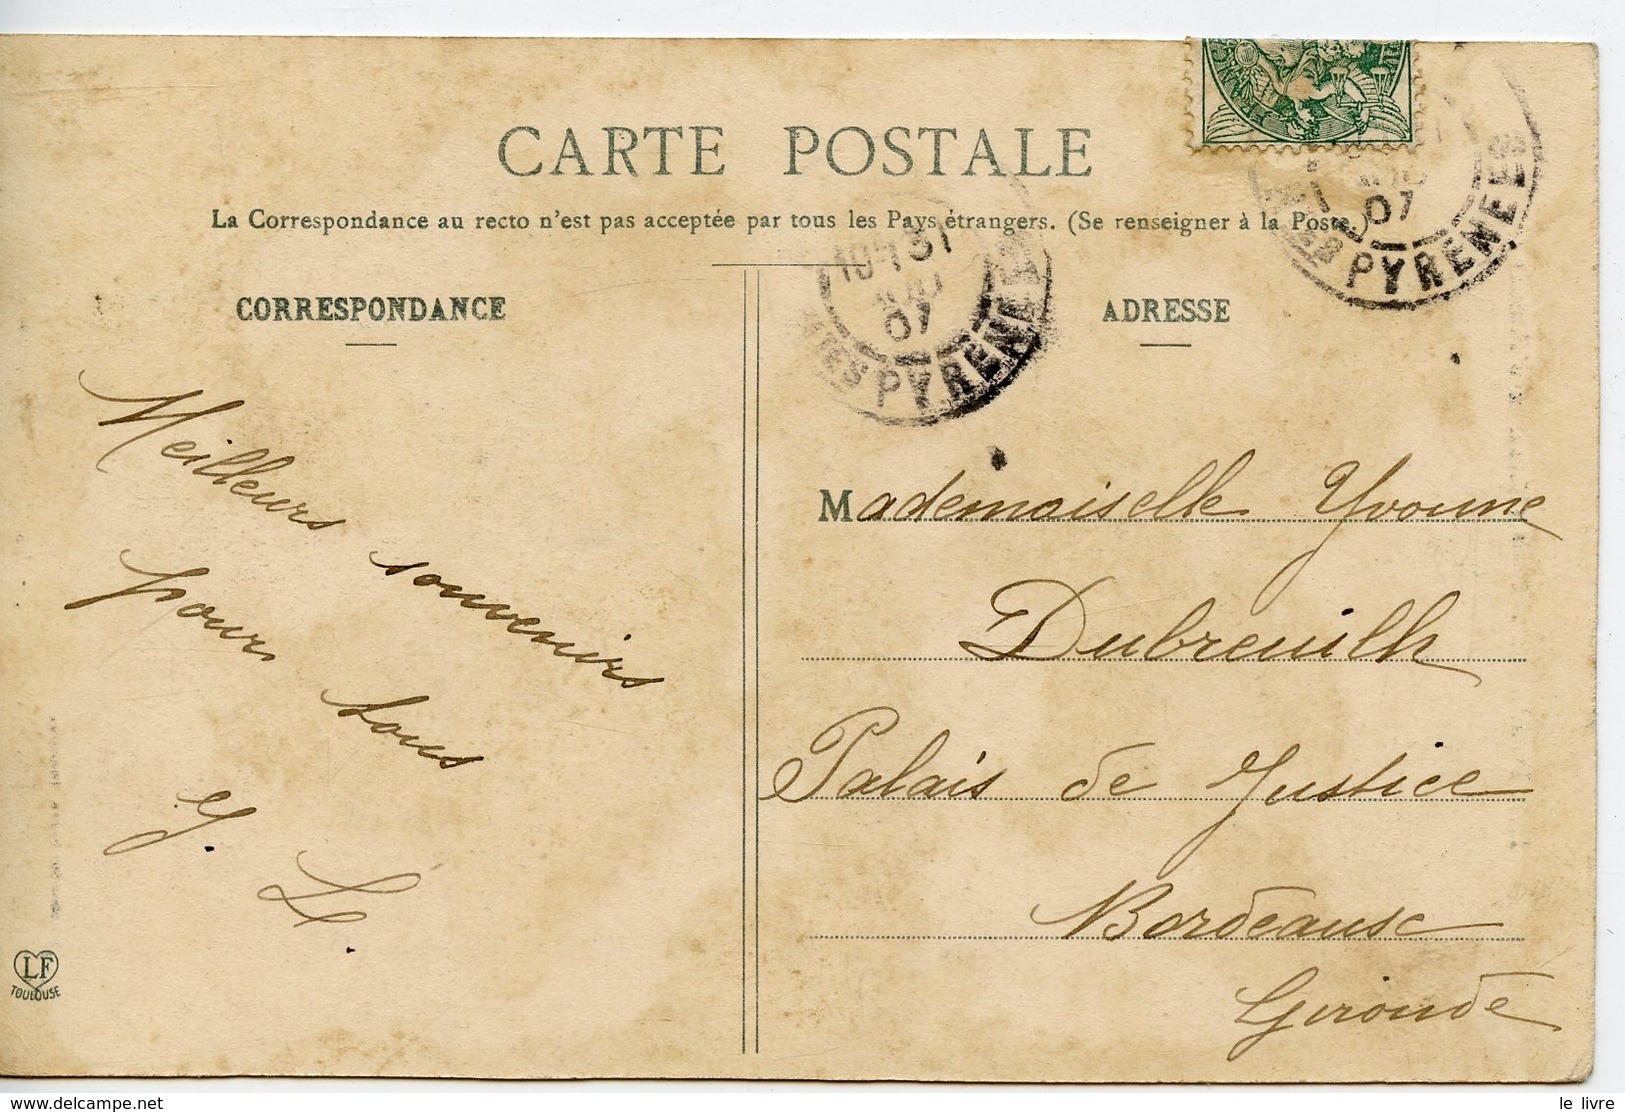 CARTE POSTALE
La Correspondance au recto n'est pas acceptée par tous les Pays étrangers. (Se renseigner à la Poste.)
CORRESPONDANCE
Meilleurs souvenirs
pour tous
Y. L.
LF
TOULOUSE
ADRESSE
Mademoiselle Yvonne
Dubreuilh
Palais de Justice
Bordeaux
Gironde
31
07
PYRENEES
07
PYRENEES
le livre